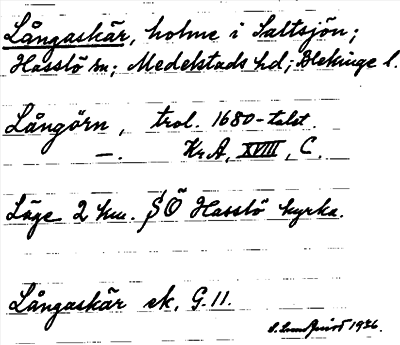 Långaskär, holme i Saltsjön;
Hasslö sn; Medelstads hd; Blekinge l.
Långörn, trol. 1680-talet.
—. Kr.A, XVIII, C.
Läge 2 km. SÖ Hasslö kyrka.
Långaskär ek. G.11.
S. Lundquist 1926.